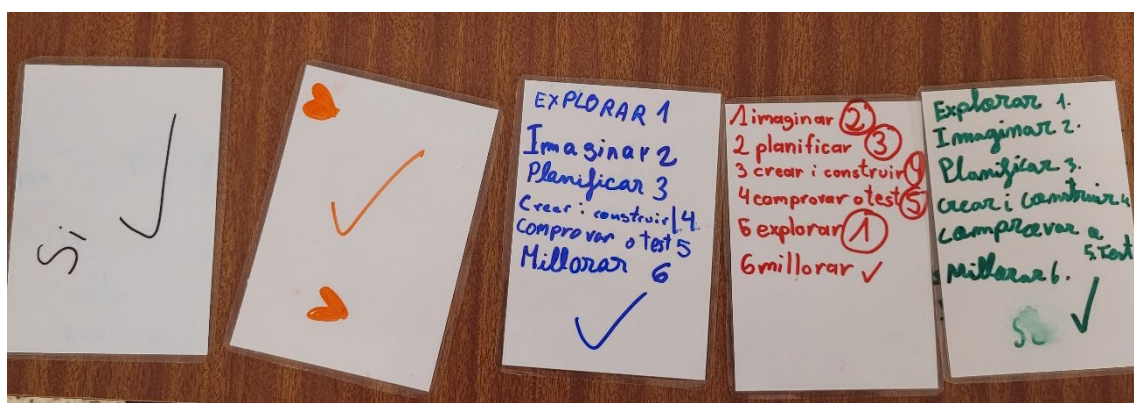 Si
EXPLORAR 1
Imaginar 2
Planificar 3
Crear i construir 4
Comprovar o test 5
Millorar 6
1 imaginar 2
2 planificar 3
3 crear i construir 4
4 comprovar o test 5
5 explorar 1
6 millorar
Explorar 1.
Immaginar 2.
Planificar 3.
crear i construir 4
comprovar o
5. Test
Millorar 6.